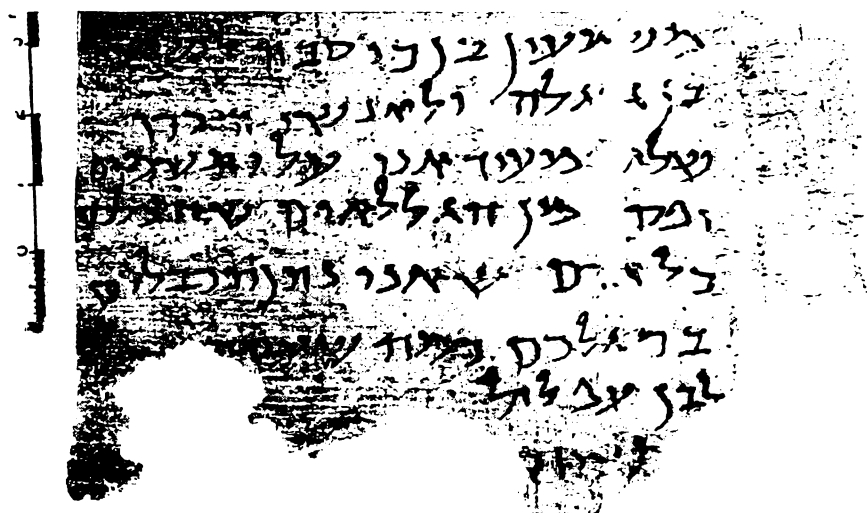 משמעון בן כוסבה
בן גלגלה ולאנשי הכרך
שלום מעיד אני עלי תשמים
יפסד מן הגללאים שהצלכם
כל אדם שאני נתן תכבלים
ברגלכם כמה שעסתי
לבן עפלול